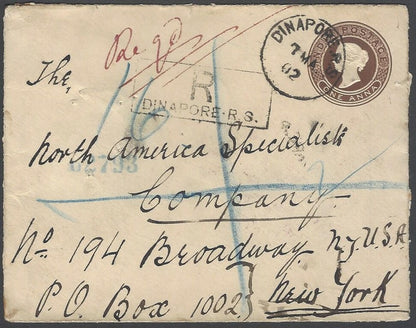 Regd
DINAPORE R.S.
7 MA
02
INDIA POSTAGE
ONE ANNA
R
DINAPORE·R.S.
The,
North America Specialist
Company
No. 194 Broadway N.Y. U.S.A
P.O. Box 1002 } New York